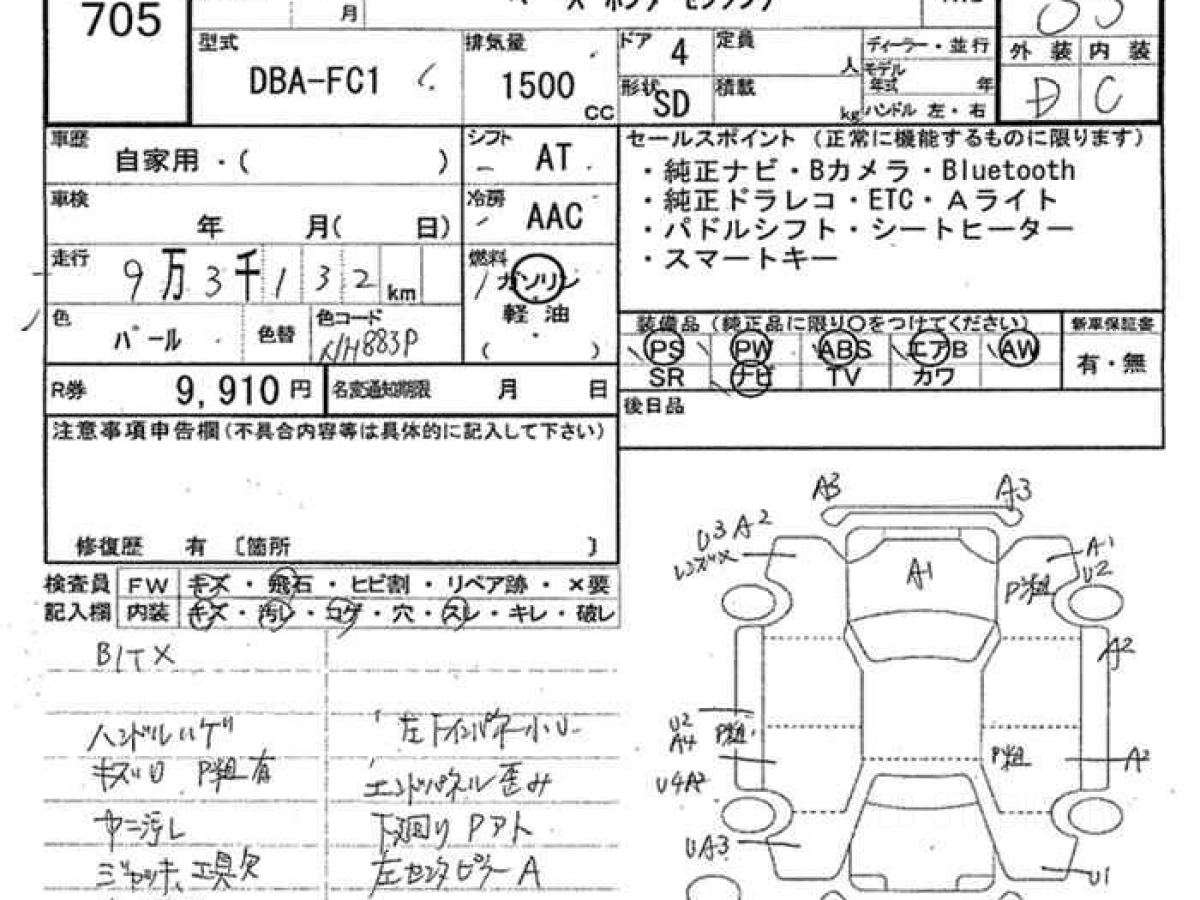 705
月
型式 DBA-FC1
排気量 1500 CC
ドア 4
形状 SD
定員 人
積載 kg
ディーラー・並行
モデル年式 年
ハンドル 左・右
外装 内装
D C
車歴 自家用・( )
シフト AT
セールスポイント (正常に機能するものに限ります)
・純正ナビ・Bカメラ・Bluetooth
・純正ドラレコ・ETC・Aライト
・パドルシフト・シートヒーター
・スマートキー
車検 年 月( 日)
冷房 AAC
走行 9万3千132km
燃料 ガソリン
軽油
( ・ )
色 パール 色替 色コード NH883P
装備品(純正品に限り○をつけてください) 新車保証書
PS PW ABS エアB AW 有・無
SR ナビ TV カワ
R券 9,910円 名変通知期限 月 日
後日品
注意事項申告欄(不具合内容等は具体的に記入して下さい)
修復歴 有 〔箇所 〕
検査員 FW キズ・飛石・ヒビ割・リペア跡・×要
記入欄 内装 キズ・汚レ・コゲ・穴・スレ・キレ・破レ
ハンドルハゲ
キズU P粗有
ヤニ汚レ
ジャッキ、工具欠
左下インパネ小U
エンドパネル歪み
下廻りPアト
左センタピラーA
A3 A3
U3 A2
レンズツメ
A1
A1
U2
P粗
A2
U2
A4
P粗
P粗
A2
U4A2
UA3
U1